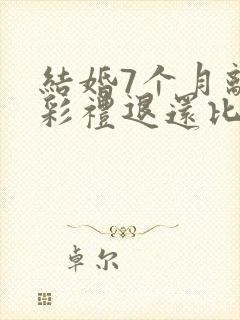 結婚7个月離
彩禮退還比
卓尔